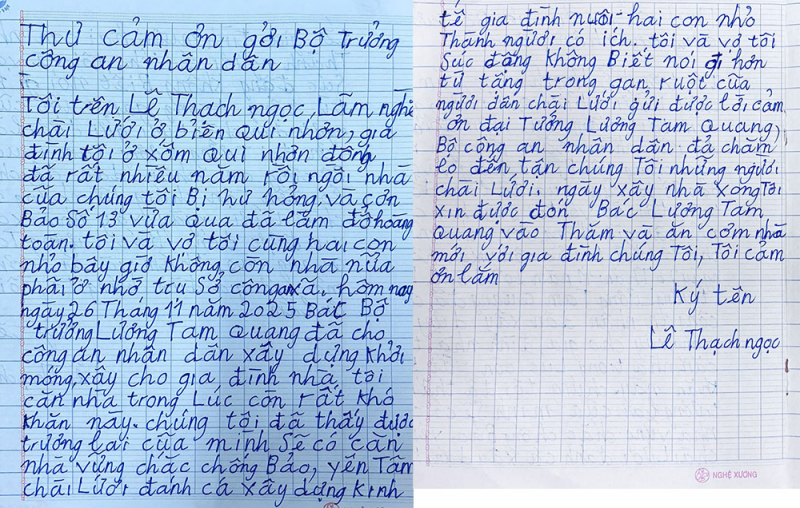 Thư cảm ơn gởi Bộ Trưởng
công an nhân dân
Tôi trên Lê Thạch ngọc, Lãm nghề
chài Lưới ở biển qui nhơn, gia
đình tôi ở xóm qui nhơn đông
đã rất nhiều năm rồi ngôi nhà
của chúng tôi Bị hư hỏng, và cơn
Bảo Số 13 vừa qua đã lãm đỗ hoàng
toàn. tôi và vở tôi cùng hai con
nhỏ bây giờ không còn nhà nữa
phải ở nhờ trụ Sở công an xã. hôm nay
ngày 26 Tháng 11 năm 2025 Bác Bộ
trưởng Lương Tam Quang đã cho
công an nhân dân xây dựng khởi
móng, xây cho gia đình nhà tôi
căn nhà trong Lúc còn rất khó
khăn này. chúng tôi đã thấy được
trưởng lai của mình Sẽ có căn
nhà vững chắc chống Bảo, yên Tâm
chài Lưới đánh cá xây dựng kinh
tế gia đình nuôi hai con nhỏ
Thành người có ích. tôi và vở tôi
Sức đăng không Biết nói gì hơn
từ tặng trong gan ruột của
người dân chài Lưới gửi được lời cảm
ơn đại Tướng Lương Tam Quang,
Bộ công an nhân dân đả chăm
lo đến tận chúng Tôi những người
chài Lưới. ngày xây nhà xong Tôi
xin được đón Bác Lương Tam
Quang vào Thăm và ăn cơm nhà
mới với gia đình chúng Tôi, Tôi cảm
ơn lắm
Ký tên
Lê Thạch ngọc
NGHỆ XƯƠNG